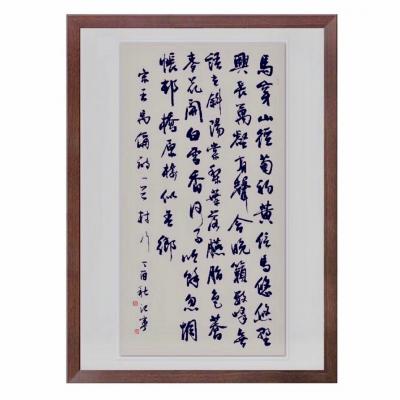 馬穿山徑菊初黃信馬悠悠野
興長萬壑有聲含晚籟數峰無
語立斜陽棠梨葉落臙脂色蕎
麥花開白雪香何事吟餘忽惆
悵邨橋原樹似吾鄉
宋王禹偁詩一首村行 丁酉秋江